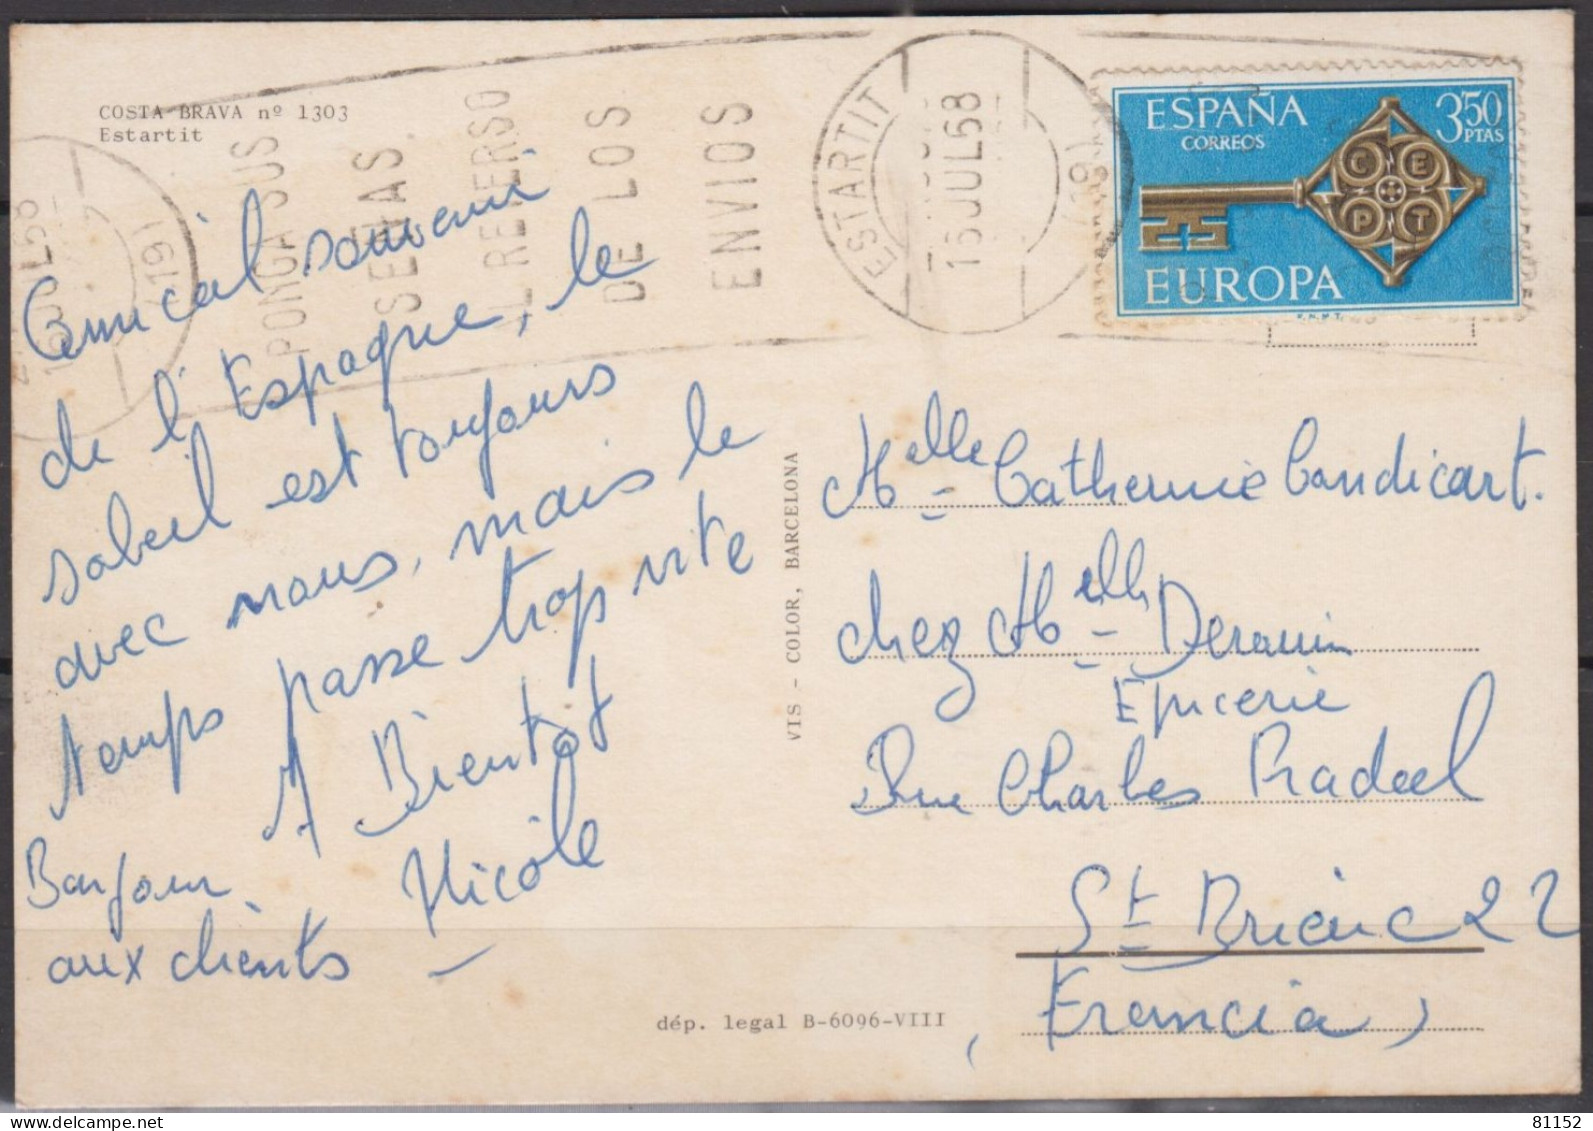 COSTA BRAVA nº 1303
Estartit
PONGA SUS
SEÑAS
AL REVERSO
DE LOS
ENVIOS
ESTARTIT
16 JUL 68
(19)
ESPAÑA
CORREOS
3,50
PTAS
C E
P T
EUROPA
F.N.M.T.
Amical souvenir
de l'Espagne, le
soleil est toujours
avec nous, mais le
temps passe trop vite
A Bientot
Nicole
Bonjour
aux clients
VIS - COLOR, BARCELONA
Melle Catherine Candicart.
chez Melle
Epicerie
Rue Charles Pradeel
St Brieuc 22
(Francia)
dép. legal B-6096-VIII
81152